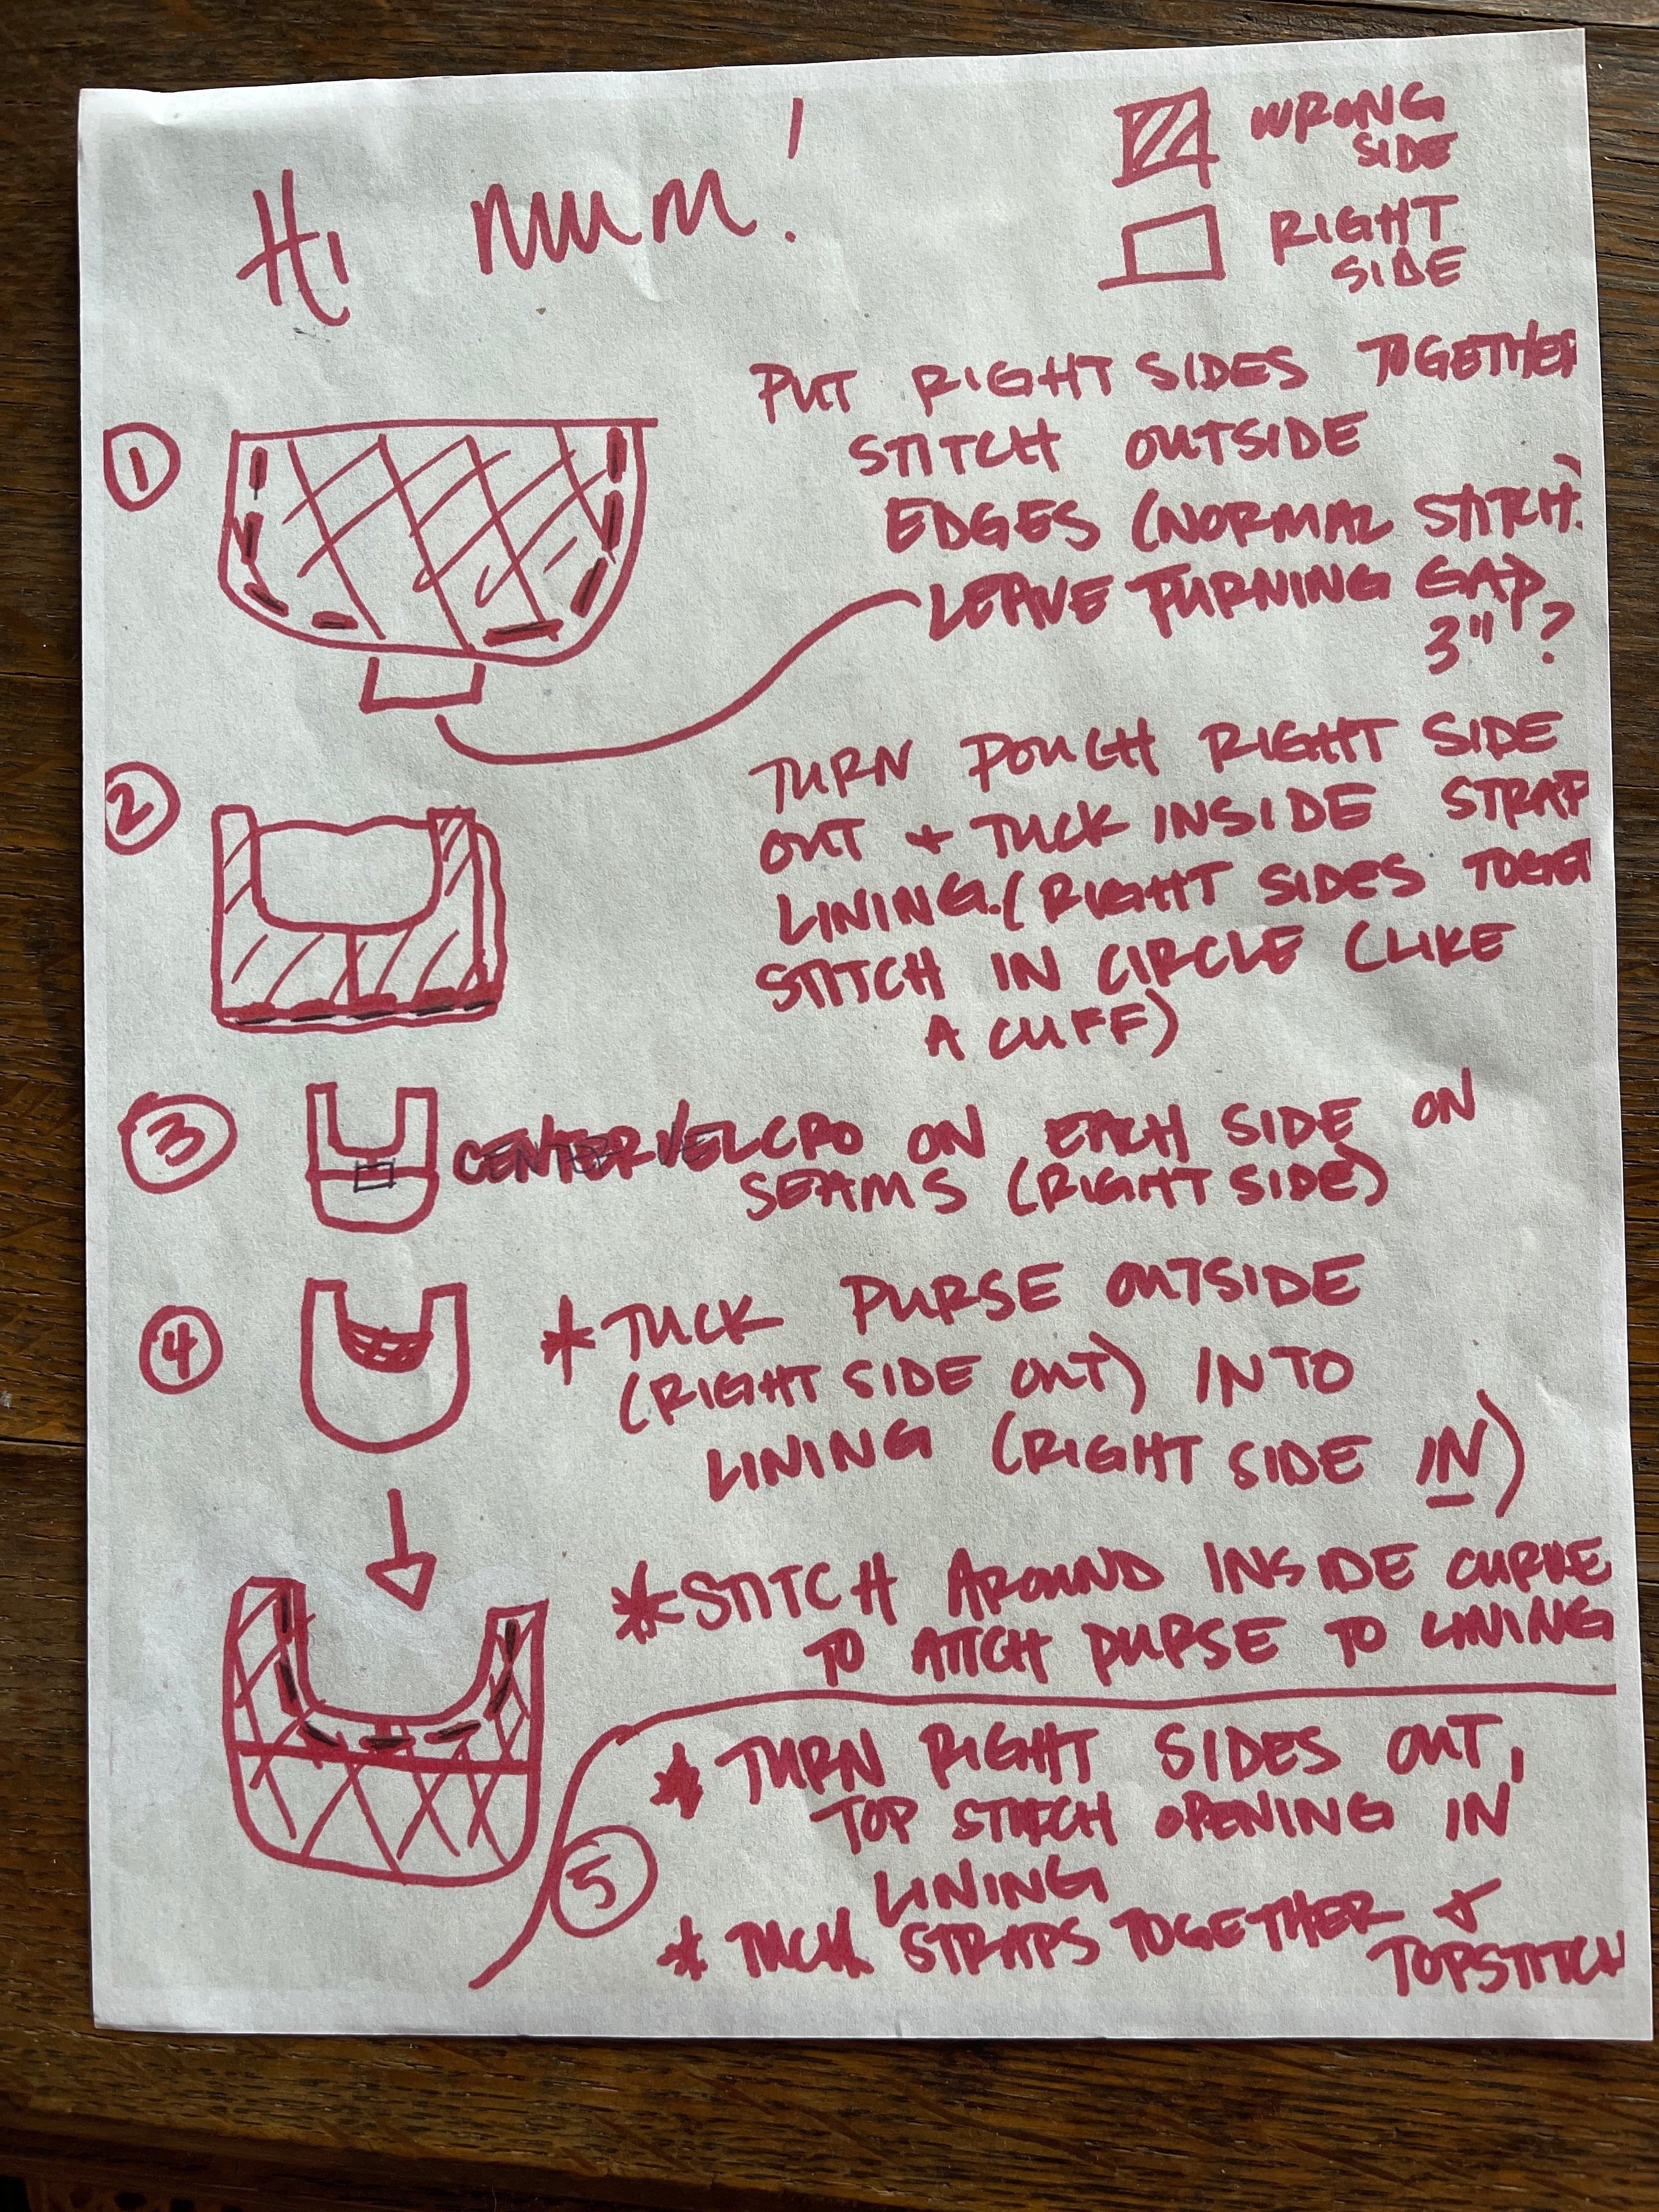 Hi mum!
WRONG
SIDE
RIGHT
SIDE
1
PUT RIGHT SIDES TOGETHER
STITCH OUTSIDE
EDGES (NORMAL STITCH.)
LEAVE TURNING GAP
3" ?
2
TURN POUCH RIGHT SIDE
OUT + TUCK INSIDE STRAP
LINING. (RIGHT SIDES TOGET
STITCH IN CIRCLE (LIKE
A CUFF)
3
CENTER VELCRO ON EACH SIDE ON
SEAMS (RIGHT SIDE)
4
* TUCK PURSE OUTSIDE
(RIGHT SIDE OUT) INTO
LINING (RIGHT SIDE IN)
* STITCH AROUND INSIDE CURVE
TO ATTCH PURSE TO LINING
5
* TURN RIGHT SIDES OUT,
TOP STITCH OPENING IN
LINING
* TUCK STRAPS TOGETHER +
TOPSTITCH